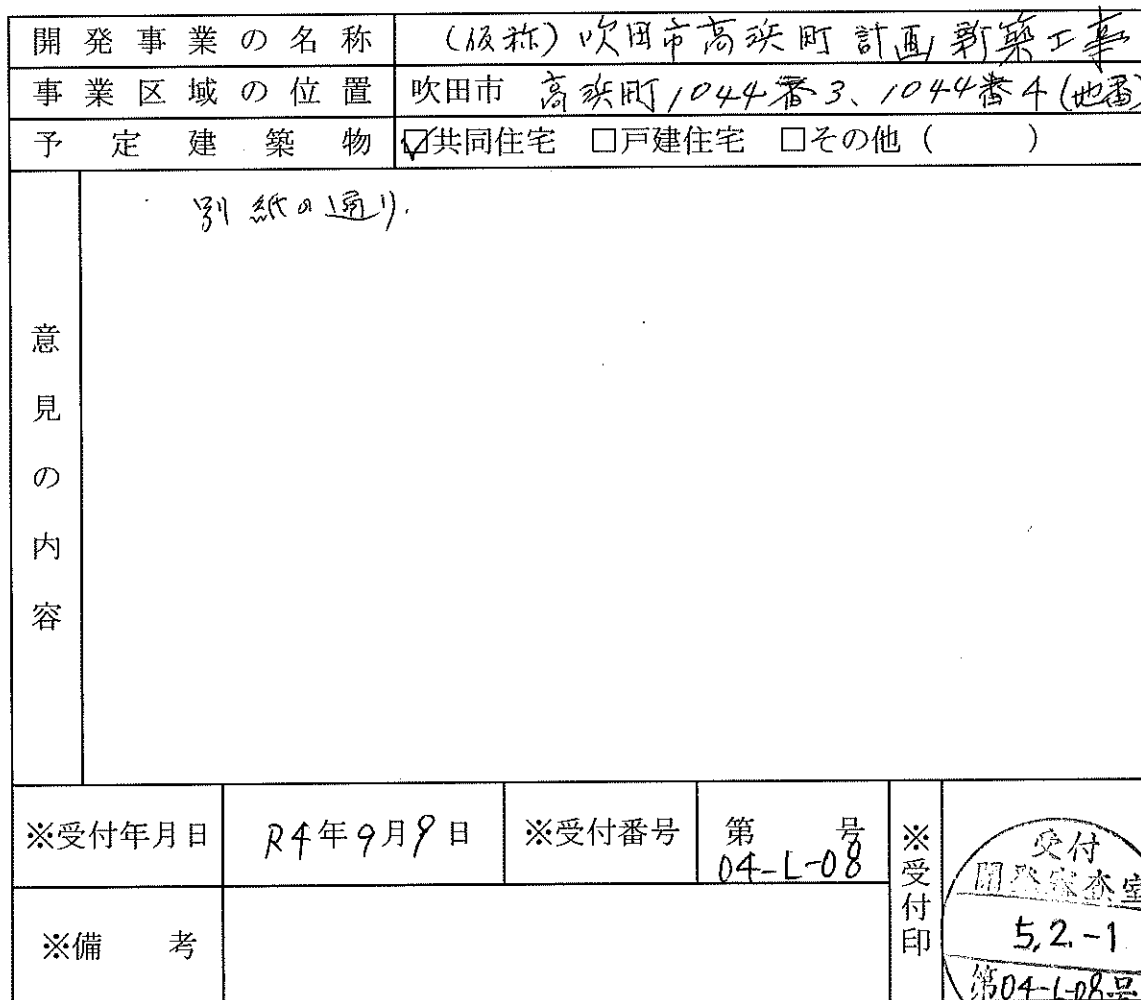 開発事業の名称 (仮称)吹田市高浜町計画新築工事
事業区域の位置 吹田市 高浜町1044番3、1044番4(地番)
予定建築物 ☑共同住宅 □戸建住宅 □その他( )
意見の内容
別紙の通り.
※受付年月日 R4年9月9日 ※受付番号 第 号
04-L-08
※受付印
受付
開発審査室
5.2.-1
第04-L-08号
※備 考